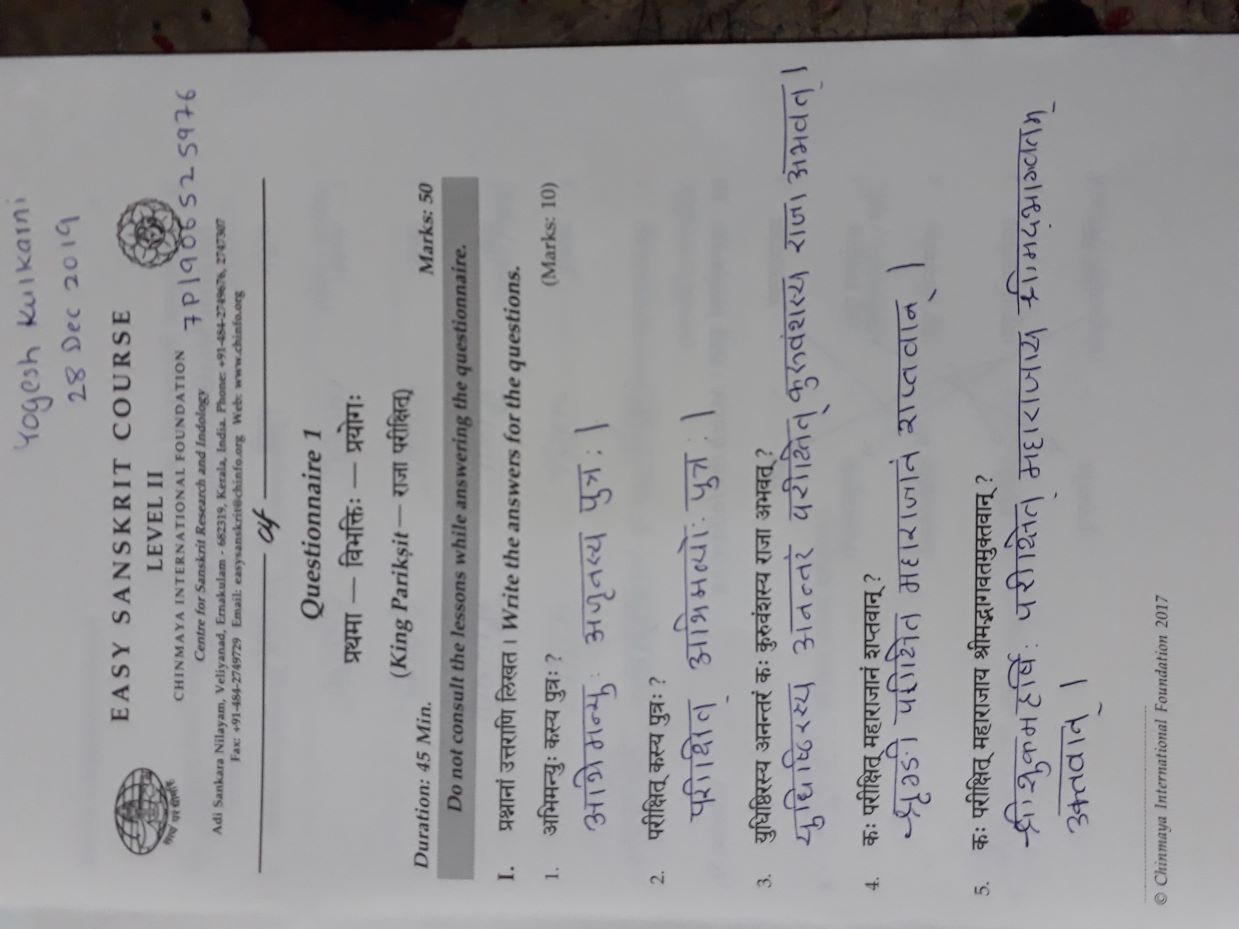 Yogesh Kulkarni
28 Dec 2019
EASY SANSKRIT COURSE
LEVEL II
CHINMAYA INTERNATIONAL FOUNDATION
7P/906525976
Centre for Sanskrit Research and Indology
Adi Sankara Nilayam, Veliyanad, Ernakulam - 682319, Kerala, India. Phone: +91-484-2749676, 2747307
Fax: +91-484-2749729 Email: easysanskrit@chinfo.org Web: www.chinfo.org
Questionnaire 1
प्रथमा — विभक्तिः — प्रयोगः
(King Parikṣit — राजा परीक्षित्)
Duration: 45 Min. Marks: 50
Do not consult the lessons while answering the questionnaire.
I. प्रश्नानां उत्तराणि लिखत । Write the answers for the questions.
1. अभिमन्युः कस्य पुत्रः ? (Marks: 10)
अभिमन्युः अर्जुनस्य पुत्रः ।
2. परीक्षित् कस्य पुत्रः ?
परीक्षित् अभिमन्योः पुत्रः ।
3. युधिष्ठिरस्य अनन्तरं कः कुरुवंशस्य राजा अभवत् ?
युधिष्ठिरस्य अनन्तरं परीक्षित् कुरुवंशस्य राजा अभवत् ।
4. कः परीक्षित् महाराजानं शप्तवान् ?
श्रृङ्गी परीक्षित महाराजानं शप्तवान् ।
5. कः परीक्षित् महाराजाय श्रीमद्भागवतमुक्तवान् ?
श्रीशुकमहर्षिः परीक्षित् महाराजाय श्रीमद्भागवतम्
उक्तवान् ।
© Chinmaya International Foundation 2017